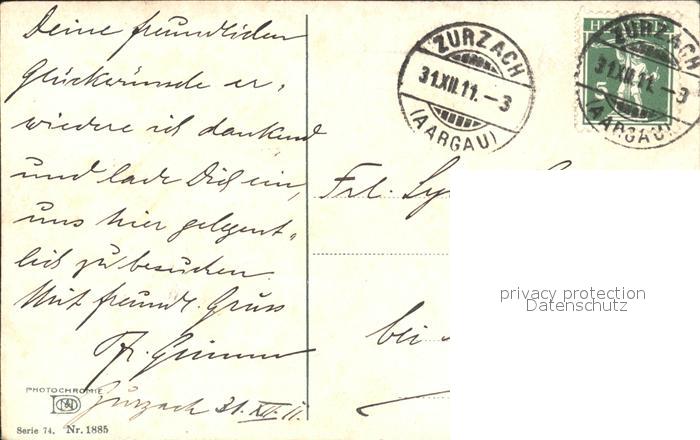 Deine freundlichen
Glückwünsche er,
wiedere ich dankend
und lade Dich ein,
uns hier gelegent-
lich zu besuchen.
Mit freundl. Gruss
Fr.
Zurzach 31. XII. 11.
PHOTOCHROMIE
Serie 74. Nr. 1885
ZURZACH
31.XII.11.–3
(AARGAU)
HELVETIA
5
ZURZACH
31.XII.11.–3
(AARGAU)
Frl.
bei
privacy protection
Datenschutz